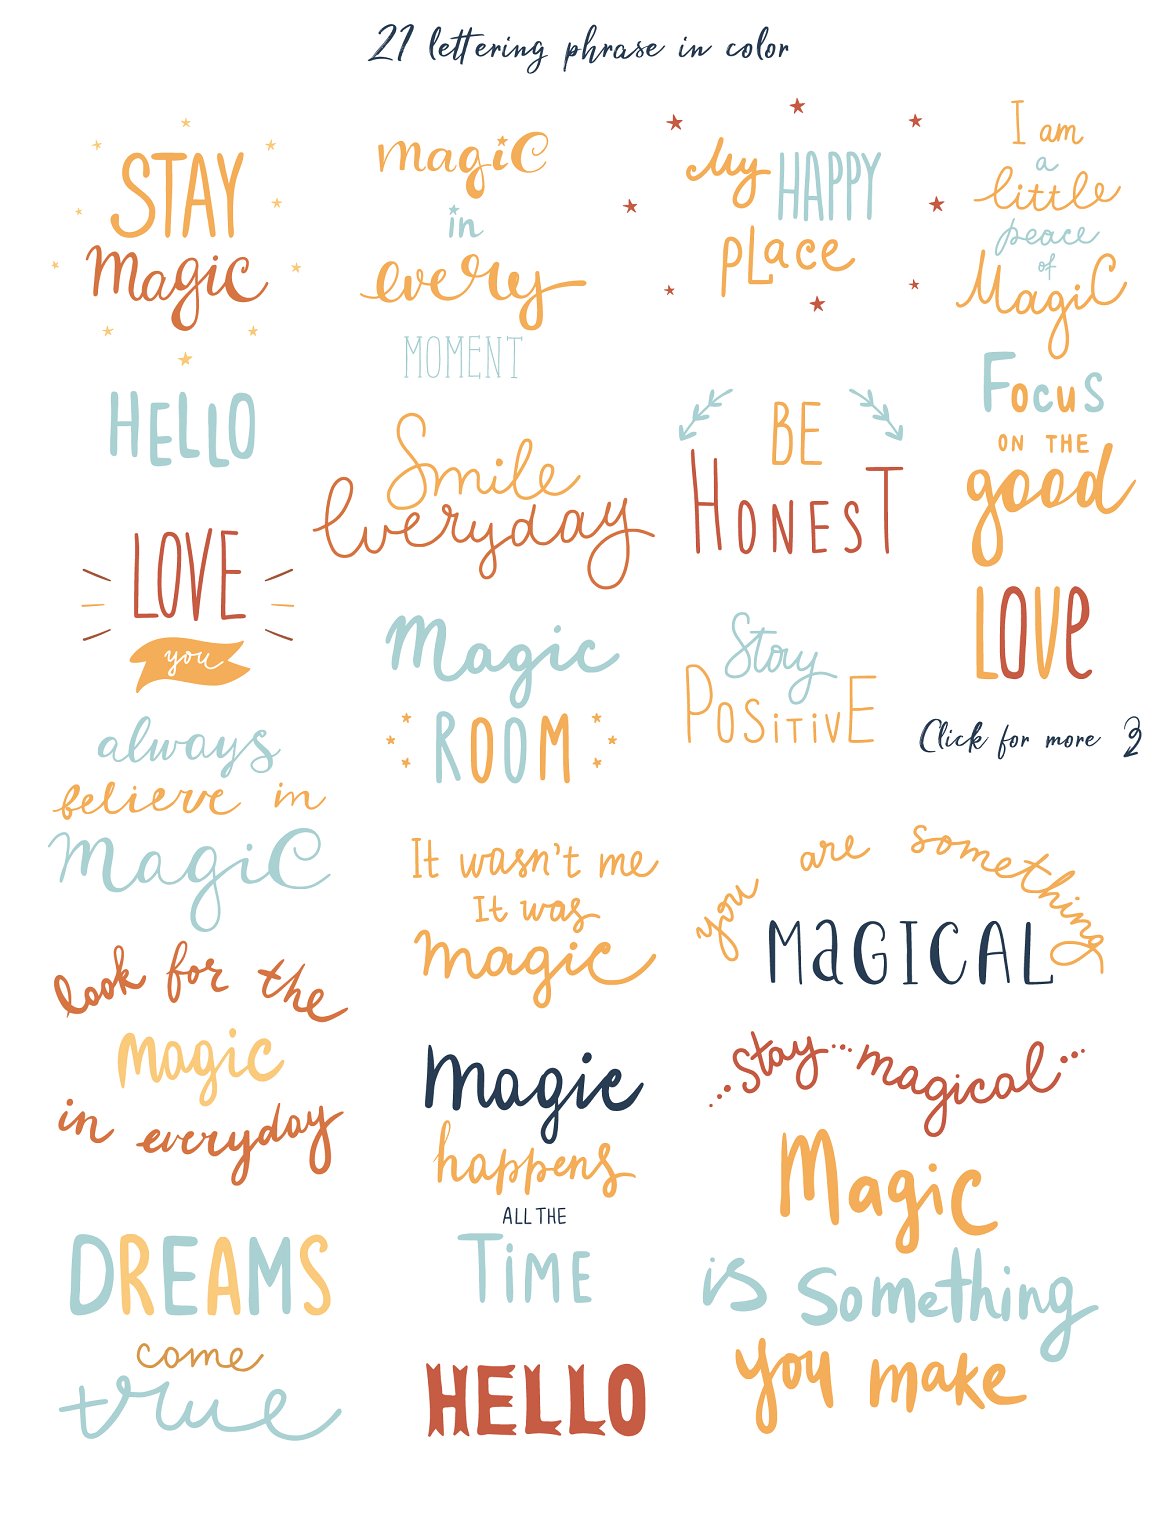 21 lettering phrase in color
STAY
magic
HELLO
LOVE
you
always
believe in
magic
look for the
magic
in everyday
DREAMS
come
true
magic
in
every
MOMENT
Smile
Everyday
Magic
ROOM
It wasn't me
It was
magic
Magic
happens
ALL THE
TiME
HELLO
My HAPPY
pLace
BE
HONEST
Stay
POSiTiVE
I am
a
little
peace
of
Magic
Focus
ON THE
good
LOVe
Click for more
you are something
MaGICAL
stay magical
Magic
is something
you make